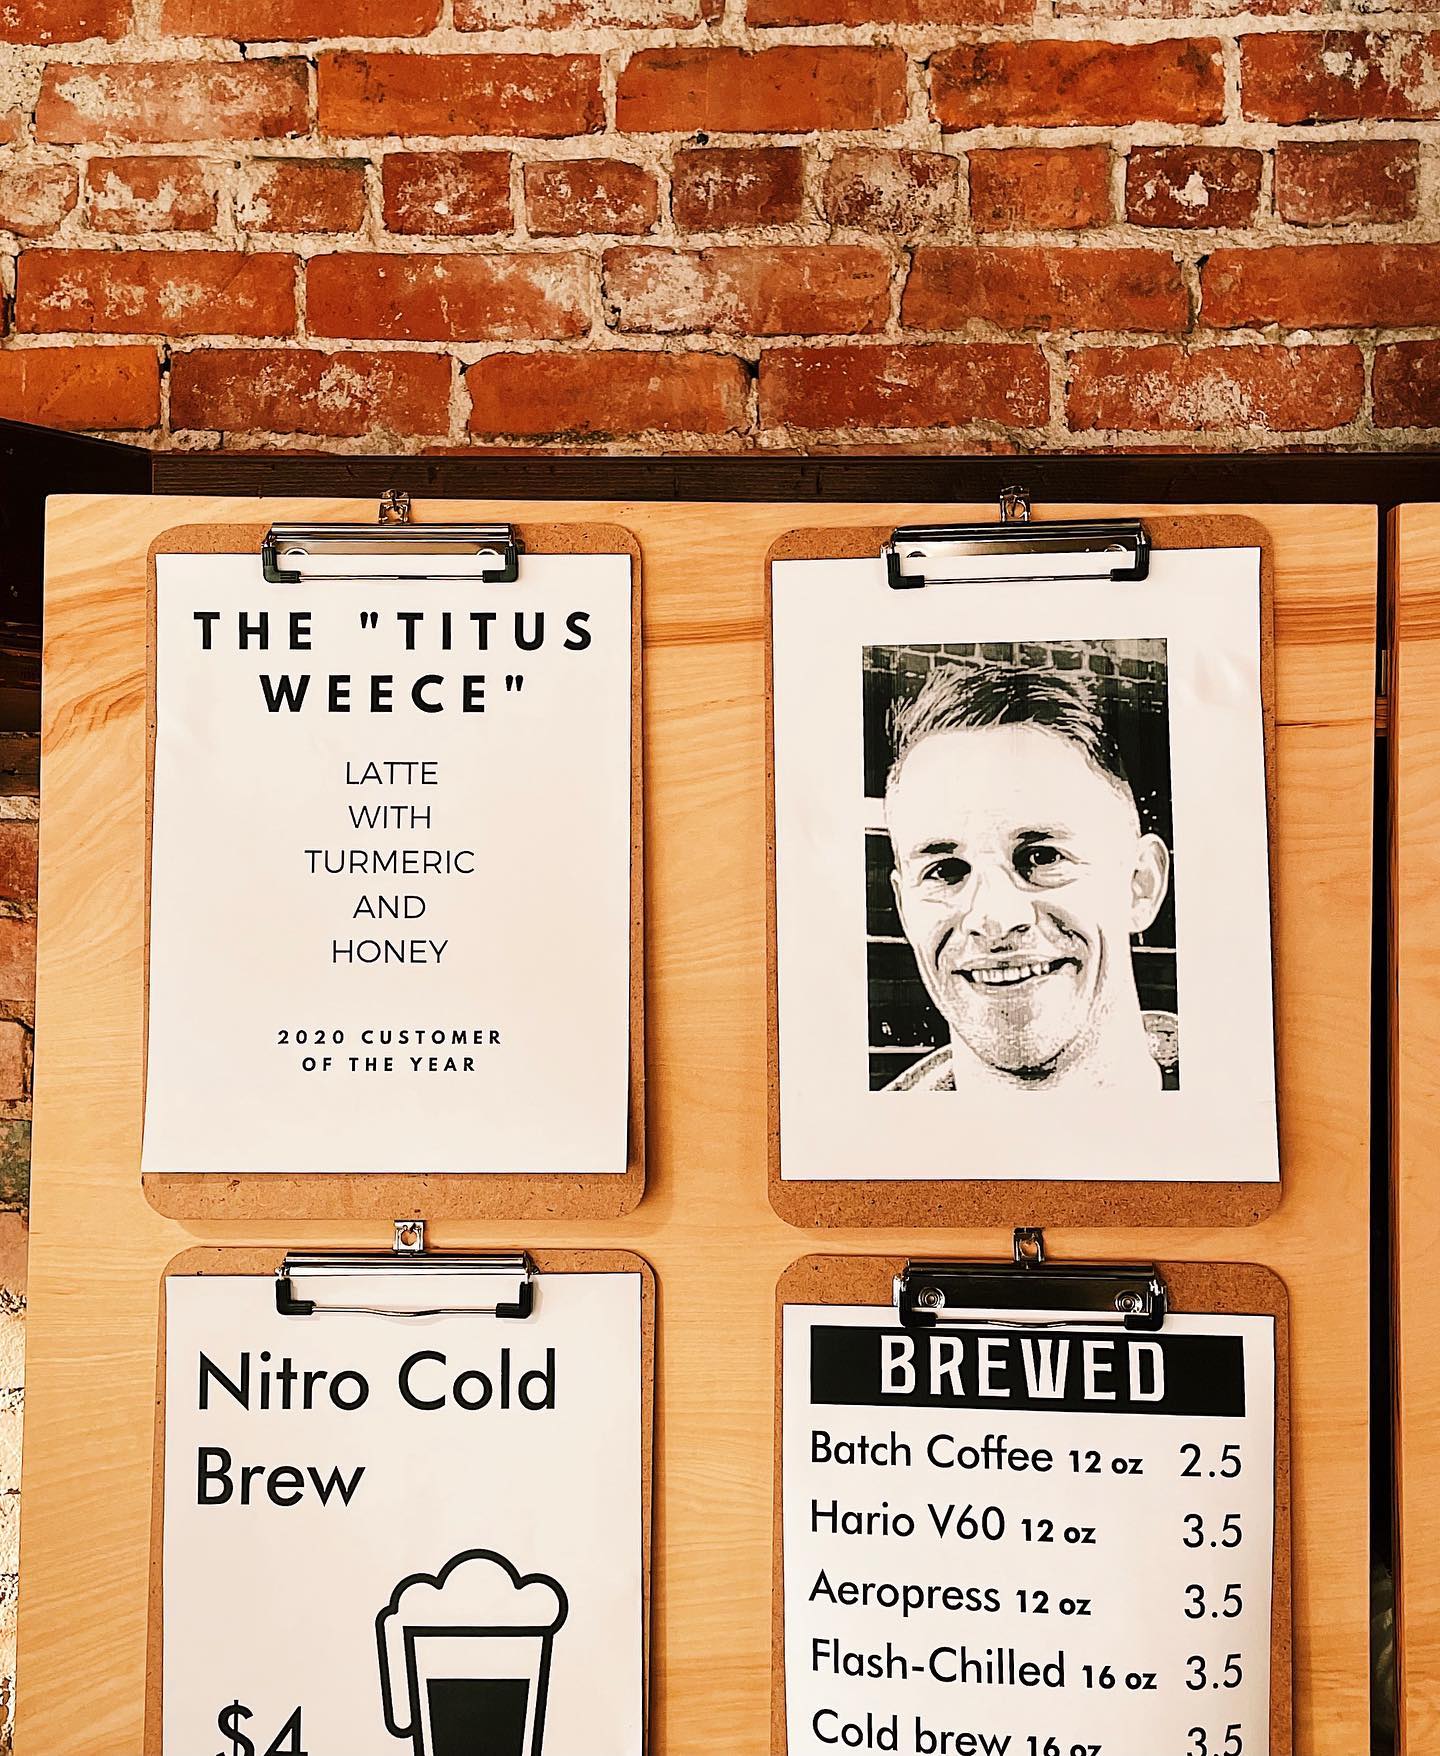 THE "TITUS
WEECE"
LATTE
WITH
TURMERIC
AND
HONEY
2020 CUSTOMER
OF THE YEAR
Nitro Cold
Brew
$4
BREWED
Batch Coffee 12 oz 2.5
Hario V60 12 oz 3.5
Aeropress 12 oz 3.5
Flash-Chilled 16 oz 3.5
Cold brew 16 oz 3.5